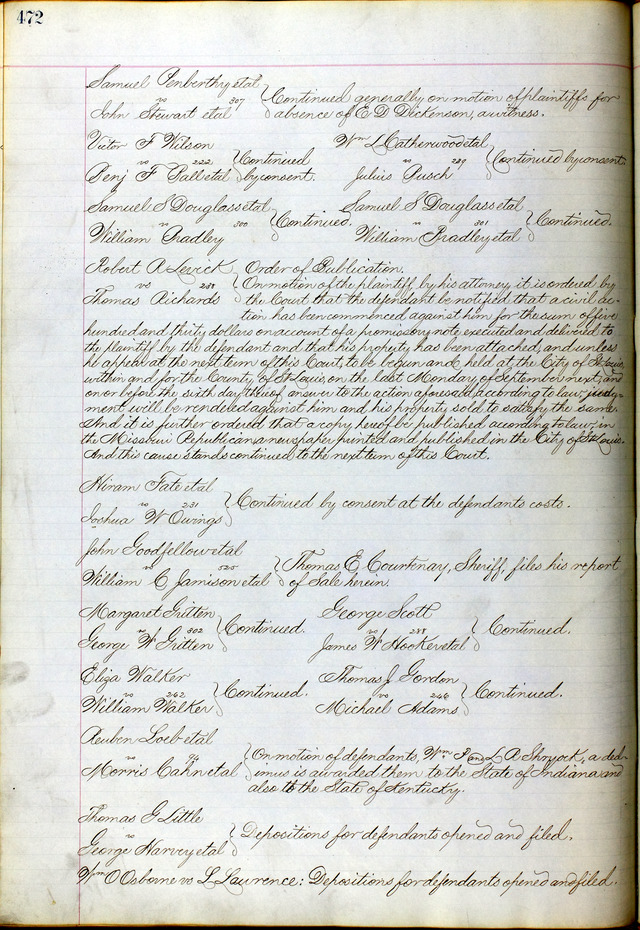 472
Samuel Penberthy etal
vs 307
John Stewart etal
Continued generally on motion of plaintiffs for
absence of E D Dickenson, a witness.
Victor F Wilson
vs 222
Benj F Hall etal
Continued
by consent.
Wm L Catherwood etal
vs 229
Julius Busch
Continued by consent.
Samuel S Douglass etal
vs 300
William Bradley
Continued.
Samuel S Douglass etal
vs 301
William Bradley etal
Continued.
Robert A Levick
vs
Thomas Richards
Order of Publication.
On motion of the plaintiff by his attorney it is ordered by
the Court that the defendant be notified that a civil ac-
tion has been commenced against him for the sum of five
hundred and thirty dollars on account of a promissory note, executed and delivered to
the plaintiff by the defendant and that his property has been attached, and unless
he appear at the next term of this Court, to be begun and held at the City of St Louis,
within and for the County of St Louis, on the last Monday of September next, and
on or before the sixth day thereof answer to the action aforesaid according to law, judg-
ment will be rendered against him and his property sold to satisfy the same.
And it is further ordered that a copy hereof be published according to law, in
the Missouri Republican, a newspaper printed and published in the City of St Louis.
And this cause stands continued to the next term of this Court.
Hiram Fate etal
vs 231
Joshua W Owings
Continued by consent at the defendants costs.
John Goodfellow etal
vs 520
William C Jamison etal
Thomas E Courtenay, Sheriff, files his report
of Sale herein.
Margaret Gritten
vs 302
George W Gritten
Continued.
George Scott
vs 238
James W Hooker etal
Continued.
Eliza Walker
vs 242
William Walker
Continued.
Thomas J Gordon
vs 246
Michael Adams
Continued.
Reuben Loeb etal
vs 94
Morris Cahn etal
On motion of defendants, Wm P and L A Shryock, a ded-
imus is awarded them to the State of Indiana and
also to the State of Kentucky.
Thomas G Little
vs
George Harvey etal
Depositions for defendants opened and filed.
Wm O Osborne vs L Laurence: Depositions for defendants opened and filed.